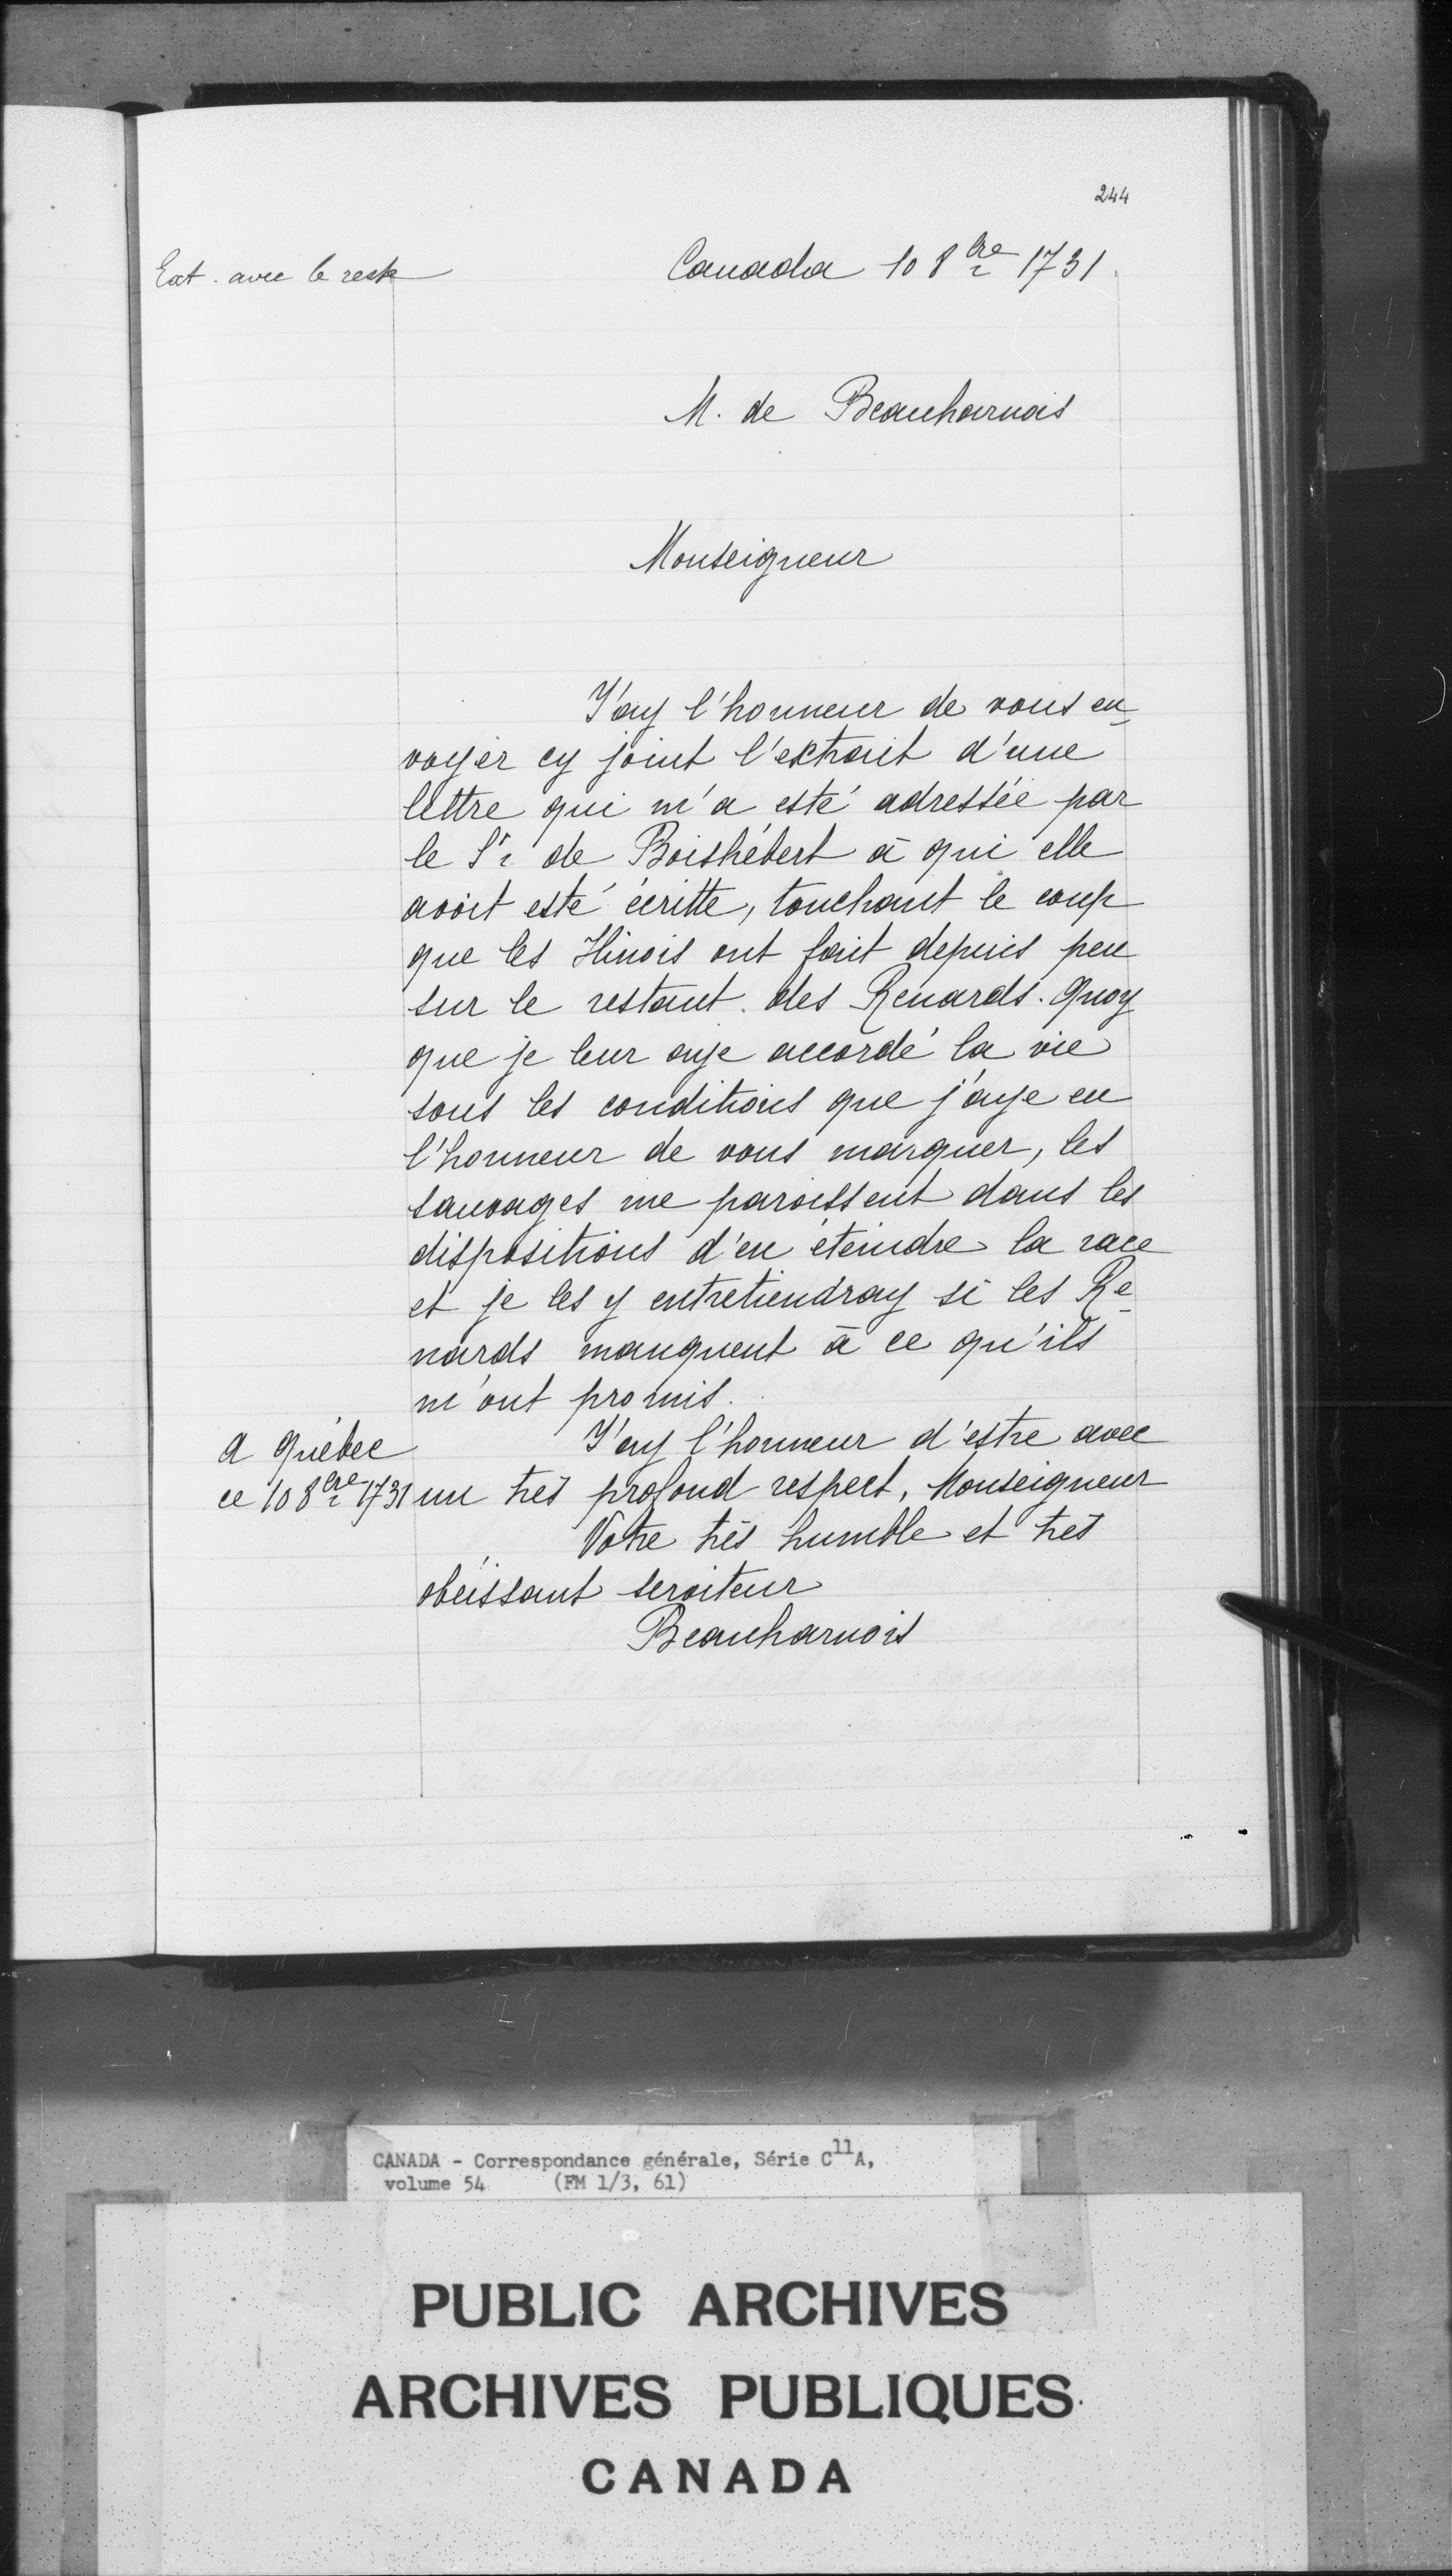 244
Ext. avec le reste
Canada 10 8bre 1731.
M. de Beauharnois
Monseigneur
J'ay l'honneur de vous en-
voyer cy joint l'extrait d'une
lettre qui m'a esté adressée par
le Sr. de Boishébert à qui elle
avoit esté écritte, touchant le coup
que les Ilinois ont fait depuis peu
sur le restant des Renards. Quoy
que je leur aye accordé la vie
sous les conditions que j'aye eu
l'honneur de vous marquer, les
sauvages me paroissent dans les
dispositions d'en éteindre la race
et je les y entretiendray si les Re-
nards manquent à ce qu'ils
m'ont promis.
J'ay l'honneur d'estre avec
a Québec
ce 10 8bre 1731
un très profond respect, Monseigneur
Votre très humble et très
obéissant serviteur
Beauharnois
CANADA - Correspondance générale, Série C11A,
volume 54 (FM 1/3, 61)
PUBLIC ARCHIVES
ARCHIVES PUBLIQUES
CANADA